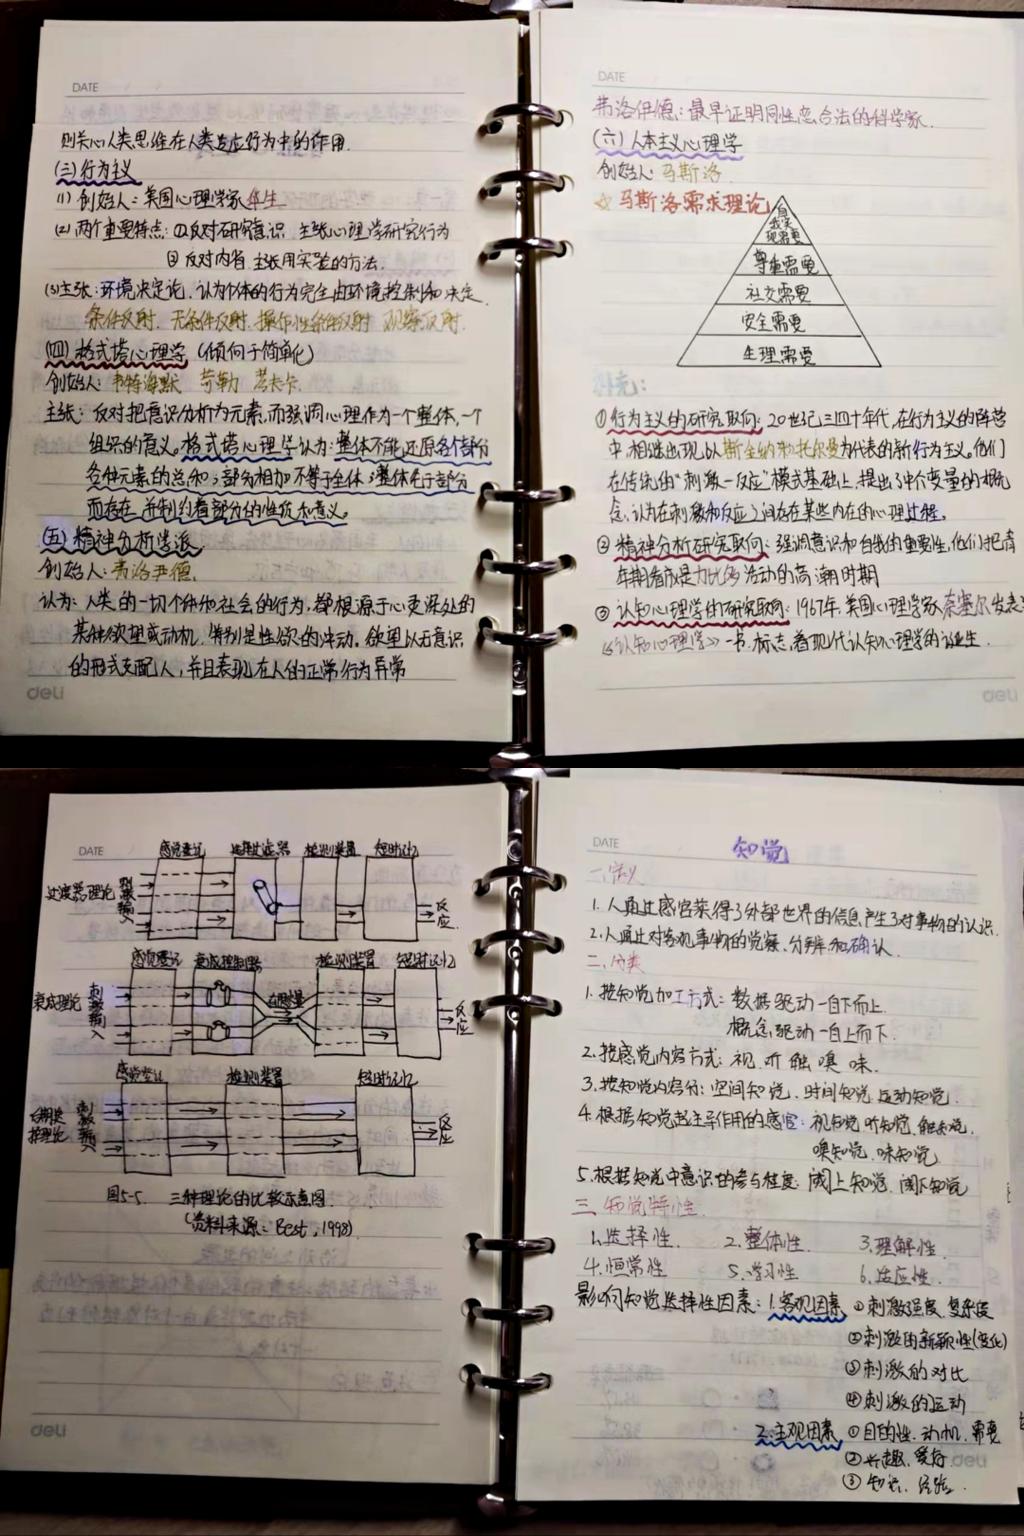 DATE
则关心人类思维在人类适应行为中的作用.
(三)行为主义
(1)创始人:美国心理学家华生
(2)两个重要特点:①反对研究意识 主张心理学研究行为
②反对内省 主张用实验的方法.
(3)主张:环境决定论,认为个体的行为完全由环境控制和决定.
条件反射.无条件反射.操作性条件反射 观察反射.
(四)格式塔心理学(倾向于简单化)
创始人:韦特海默 苛勒 考夫卡
主张:反对把意识分析为元素,而强调心理作为一个整体,一个
组织的意义。格式塔心理学认为:整体不能还原各个部分
各种元素的总和;部分相加不等于全体;整体先于部分
而存在,并制约着部分的性质和意义。
(五)精神分析学派
创始人:弗洛伊德.
认为:人类的一切个体和社会的行为,都根源于心灵深处的
某种欲望或动机,特别是性欲的冲动。欲望以无意识
的形式支配人,并且表现在人的正常行为异常
deli
DATE
弗洛伊德:最早证明同性恋合法的科学家.
(六)人本主义心理学
创始人:马斯洛.
☆马斯洛需求理论
自我实现需要
尊重需要
社交需要
安全需要
生理需要
补充:
①行为主义的研究取向:20世纪三四十年代,在行为主义的阵营
中,相继出现以斯金纳和托尔曼为代表的新行为主义,他们
在传统的"刺激-反应"模式基础上,提出了中介变量的概
念,认为在刺激和反应之间存在某些内在的心理过程。
②精神分析研究取向:强调意识和自我的重要性,他们把青
年期看成是力比多活动的高潮时期
③认知心理学的研究取向:1967年,美国心理学家奈塞尔发表了
《认知心理学》一书,标志着现代认知心理学的诞生.
deli
DATE
感觉登记 选择过滤器 检测装置 短时记忆
过滤器理论 刺激输入 反应
感觉登记 衰减控制器 检测装置 短时记忆
衰减理论 刺激输入 反应
感觉登记 检测装置 短时记忆
后期选择理论 刺激输入 反应
图5-5. 三种理论的比较示意图.
(资料来源:Best,1998).
deli
DATE
知觉
一.定义
1.人通过感官获得了外部世界的信息,产生了对事物的认识.
2.人通过对客观事物的觉察、分辨和确认.
二.分类
1.按知觉加工方式:数据驱动—自下而上.
概念驱动—自上而下.
2.按感觉内容方式:视.听.触.嗅.味.
3.按知觉内容分:空间知觉.时间知觉.运动知觉.
4.根据知觉起主导作用的感官:视知觉.听知觉.触知觉.
嗅知觉.味知觉.
5.根据知觉中意识的参与程度:阈上知觉.阈下知觉
三.知觉特性.
1.选择性. 2.整体性. 3.理解性.
4.恒常性 5.学习性 6.适应性.
影响知觉选择性因素:1.客观因素 ①刺激强度.复杂度
②刺激的新颖性(变化)
③刺激的对比
④刺激的运动
2.主观因素 ①目的性.动机.需要
②兴趣.爱好
③知识.经验.
deli